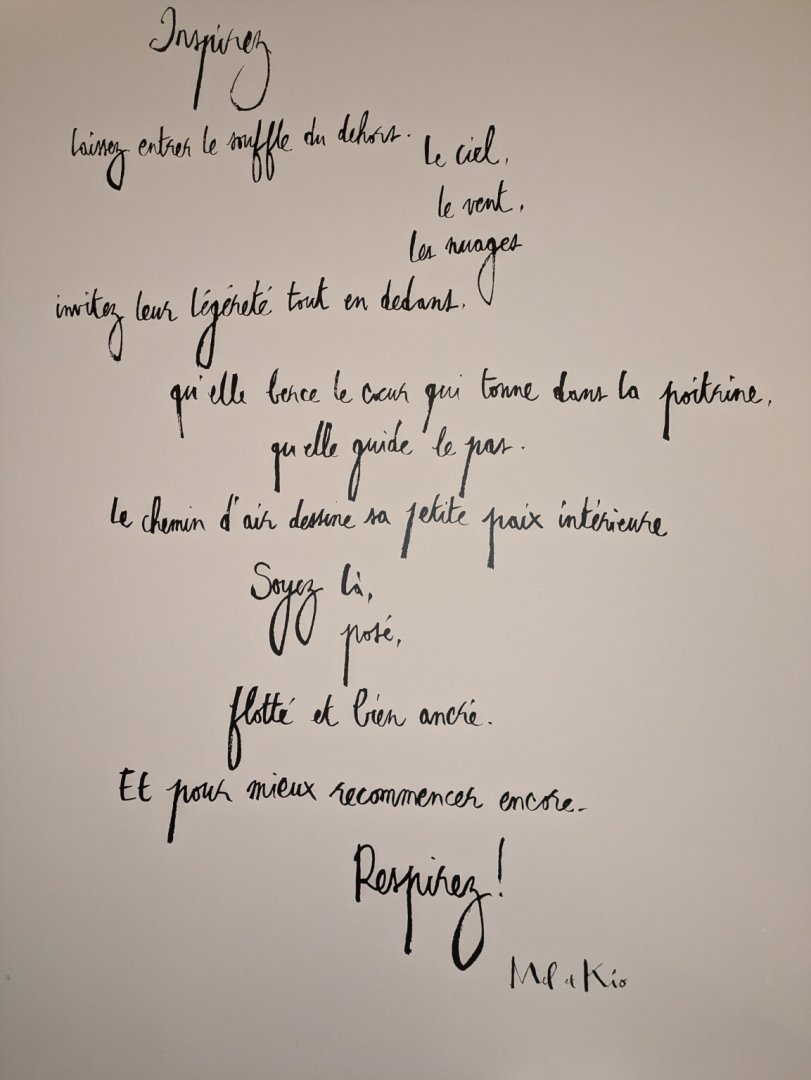 Inspirez
laissez entrer le souffle du dehors.
le ciel,
le vent,
les nuages
invitez leur légéreté tout en dedans.
qu'elle berce le cœur qui tonne dans la poitrine,
qu'elle guide le pas.
Le chemin d'air dessine sa petite paix intérieure
Soyez là,
posé,
flotté et bien ancré.
Et pour mieux recommencer encore.
Respirez!
Mel et Kio